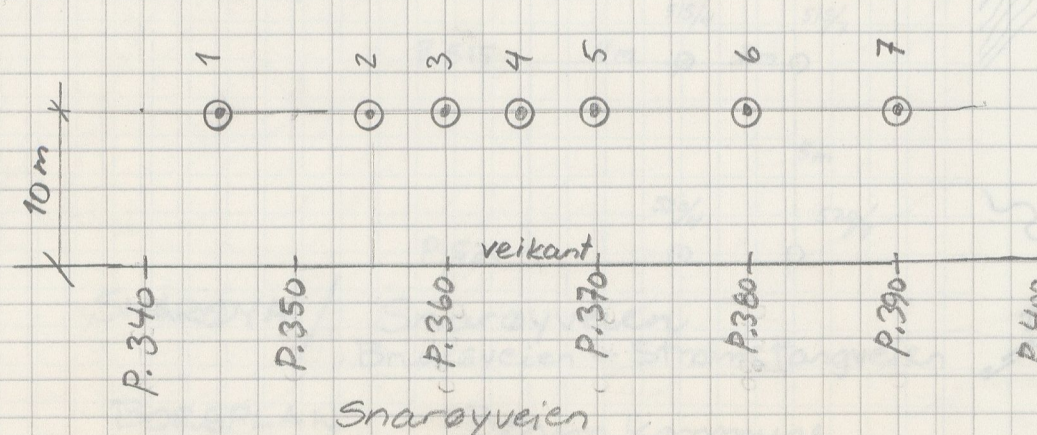 1 2 3 4 5 6 7
10m
veikant
P.340 P.350 P.360 P.370 P.380 P.390 P.400
Snarøyveien